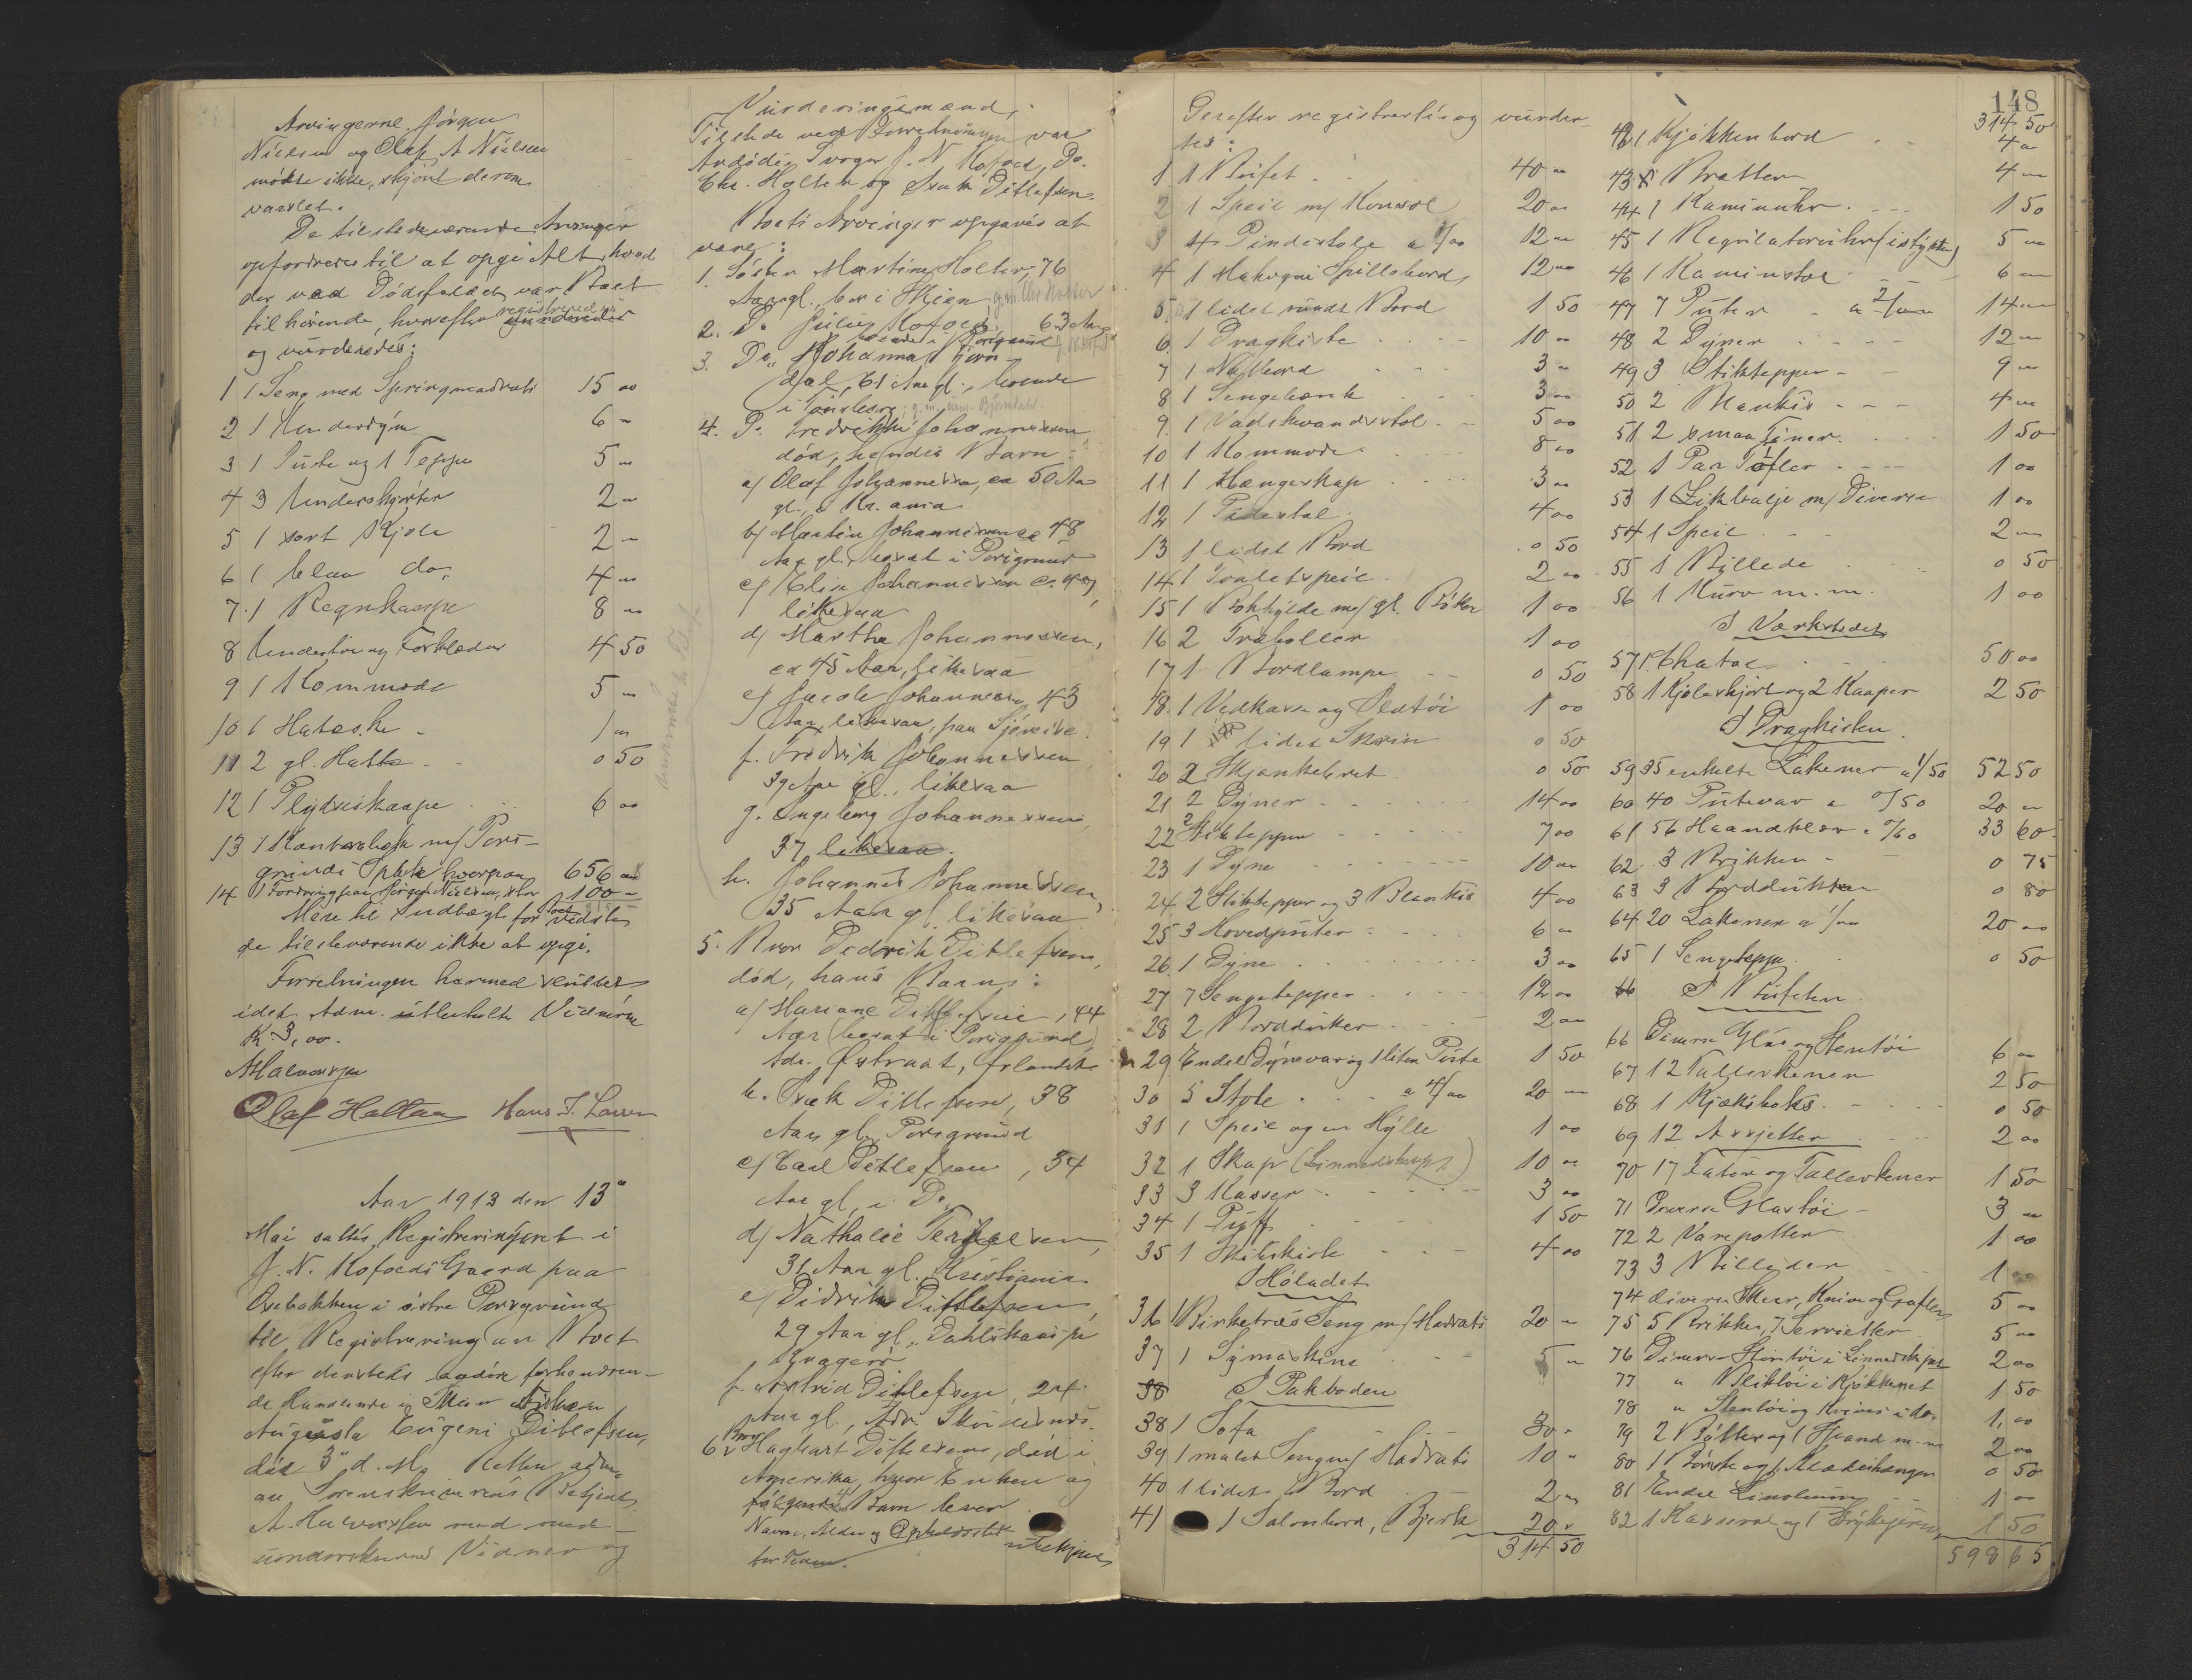 Arvingerne Jørgen
Nielsen og Olaf A Nielsen
mødte ikke, skjønt derom
varslet.
De tilstedeværende Arvinger
opfordredes til at opgi Alt, hvad
der ved Dødsfaldet var Boet
tilhørende, hvorefter registreredes
og vurderedes:
1 1 Seng med Springmadrats 15 00
2 1 Underdyne 6 "
3 1 Pute og 1 Teppe 5 "
4 3 Underskjorter 2 "
5 1 sort Kjole 2 "
6 1 blaa do. 4 "
7 1 Regnkaape 8 "
8 Undertøi og Forklæder 4 50
9 1 Kommode 5 "
10 1 Hateske 1 "
11 2 gl. Hatte 0 50
12 1 Plydseskaape 6 00
13 1 Kontrabok m/ Pors-
grunds Spbk hvorpaa 656 "
14 1 Fordring paa Jørgen Nielsen, stor 100 -
Mere til Indtægt for Boet vidste
de tilstedeværende ikke at opgi.
Forretningen hermed sluttet
idet Adm. utbetalte Vidnerne
K 3,00.
AHalvorsen
Olaf Haltaa Hans J. Larsen
Aar 1913 den 13de
Mai sattes Registreringsret i
J. N. Kofoeds Gaard paa
Osebakken i østre Porsgrund
til Registrering av Boet
efter densteds logdøre forhenværen-
de Handlende i Skien Frøken
Augusta Eugeni Ditlefsen,
død 3de d. M. Retten adm.
av Sorenskriverens Betjent
A. Halvorsen med med-
underskrevne Vidner og
Vurderingsmænd.
Tilstede ved Forretningen var
Avdødes Svoger J. N. Kofoed, Do.
Chr. Holter og Isak Ditlefsen.
Boets Arvinger opgaves at
være:
1. Søster Martine Holter, 76
Aar gl., bor i Skien g.m. Chr Holter
2. Do Julie Kofoed, 63 Aar
boende i Porsgrund
3. Do Johanna Bjørn-
dal, 61 Aar gl., boende
i Tønsberg, g.m.
4. Do Fredrikke Johannessen,
død, hendes Barn:
a/ Olaf Johannessen, ca 50 Aar
gl., i Kr.ania
b/ Martin Johannessen ca 48
Aar gl. bosat i Porsgrund
c/ Elise Johannessen ca. 47,
likesaa
d/ Martha Johannessen,
ca 45 Aar, likesaa
e/ Jacob Johannessen, 43
Aar, likesaa, paa Sjøreise
f. Fredrik Johannessen
39 Aar gl., likesaa
g. Ingeborg Johannessen,
37 likesaa.
h. Johannes Johannessen,
35 Aar gl. likesaa
5. Bror Didrik Ditlefsen,
død, hans Barn:
a/ Mariane Ditlefsen, 44
Aar (bosat i Porsgrund)
Adr. Østraat, Ørlandet
b. Isak Ditlefsen, 38
Aar gl., Porsgrund
c/ Carl Ditlefsen, 34
Aar gl., i Do.
d/ Nathalie Terjesen,
31 Aar gl. Kristiania
e/ Didrik Ditlefsen,
29 Aar gl.,
Kragerø
f. Astrid Ditlefsen, 24
Aar gl., Adr. Skudesnes.
6. Bror Haghart Ditlefsen, død i
Amerika, hvor Enken og
følgende 4 Barn lever
Navn, Alder og Opholdssted ubekjendt
for Tiden.
148
Derefter registrertes og vurder-
tes:
1 1 Bufet 40 "
2 1 Speil m/ Konsol 20 "
3 4 Pindestole a 3/00 12 "
4 1 Mahogni Spillebord 12 00
5 1 lidet rundt Bord 1 50
6 1 Dragkiste 10 "
7 1 Natbord 3 "
8 1 Sengebænk 3 00
9 1 Vadskevandsstol 5 00
10 1 Kommode 8 00
11 1 Hængeskap 3 00
12 1 Pidestal 4 00
13 1 lidet Bord 0 50
14 1 Toiletspeil 2 00
15 1 Bokhylde m/ gl. Bøker 1 00
16 2 Træboller 1 00
17 1 Bordlampe 0 50
18 1 Vedkasse og Ildtøi 1 00
19 1 lidet Skrin 0 50
20 2 Skjænkebret 0 50
21 2 Dyner 14 00
22 2 Stikteppen 7 00
23 1 Dyne 10 00
24 2 Stiktepper og 3 Blankis 4 00
25 3 Hovedputer 6 "
26 1 Dyne 3 00
27 7 Sengetepper 12 00
28 2 Bordduker 2 00
29 Endel Dynevar og 1 liten Pute 1 50
30 5 Stole a 4/00 20 "
31 1 Speil og en Hylle 1 00
32 1 Skap (Linnedskap) 10 "
33 3 Kasser 3 00
34 1 Puff 1 50
35 1 Skibskiste 4 00
I Høladet
36 1 Birketræs Seng m/ Madrats 20 "
37 1 Symaskine 5 "
38 I Pakboden
38 1 Sofa 30 "
39 1 malet Seng m/ Madrats 10 "
40 1 lidet Bord 2 "
41 1 Salonbord, Bjerk 20 "
314 50
314 50
42 1 Kjøkkenbord 4 "
43 8 Bretter 4 "
44 1 Kaminuhr 1 50
45 1 Regulatoruhr (istykker) 5 "
46 1 Kaminstol 6 "
47 7 Puter a 2/00 14 "
48 2 Dyner 12 "
49 3 Stiktepper 9 "
50 2 Blankis 4 "
51 2 smaa Tiner 1 50
52 1 Par Tøfler 1 00
53 1 Zinkbalje m/ Diverse 1 00
54 1 Speil 2 "
55 1 Billede 0 50
56 1 Kurv m.m. 1 00
I Værkstedet
57 1 Chatol 50 00
58 1 Kjoleskjørt og 2 Kaaper 2 50
I Dragkisten
59 35 enkelte Lakener a 1/50 52 50
60 40 Putevar a 0/50 20 "
61 56 Haandklær a 0/60 33 60
62 3 Brikker 0 75
63 3 Bordduker 0 80
64 20 Lakener a 1/00 20 00
65 1 Sengeteppe 0 50
66 I Bufeten
66 Diverse Glas og Stentøi 6 "
67 12 Tallerkener 2 50
68 1 Kjæksboks 0 50
69 12 Assjetter 2 00
70 17 Fater og Tallerkener 1 50
71 Diverse Glastøi 3 "
72 2 Vasepotter 1 00
73 3 Billeder 1 00
74 diverse Skeer, Knive og Gafler 5 00
75 5 Brikker, 7 Servietter 5 00
76 Diverse Stentøi i Linnedskapet 2 00
77 " Bliktøi i Kjøkkenet 1 50
78 " Stentøi og Knives i do. 1,00
79 2 Bøtter og 1 Spand m.m 2 00
80 1 Børste og 1 Klædeshænger 0 50
81 Endel Linoleum 1 00
82 1 Kasserol og 1 Strykejern 1 50
598 65